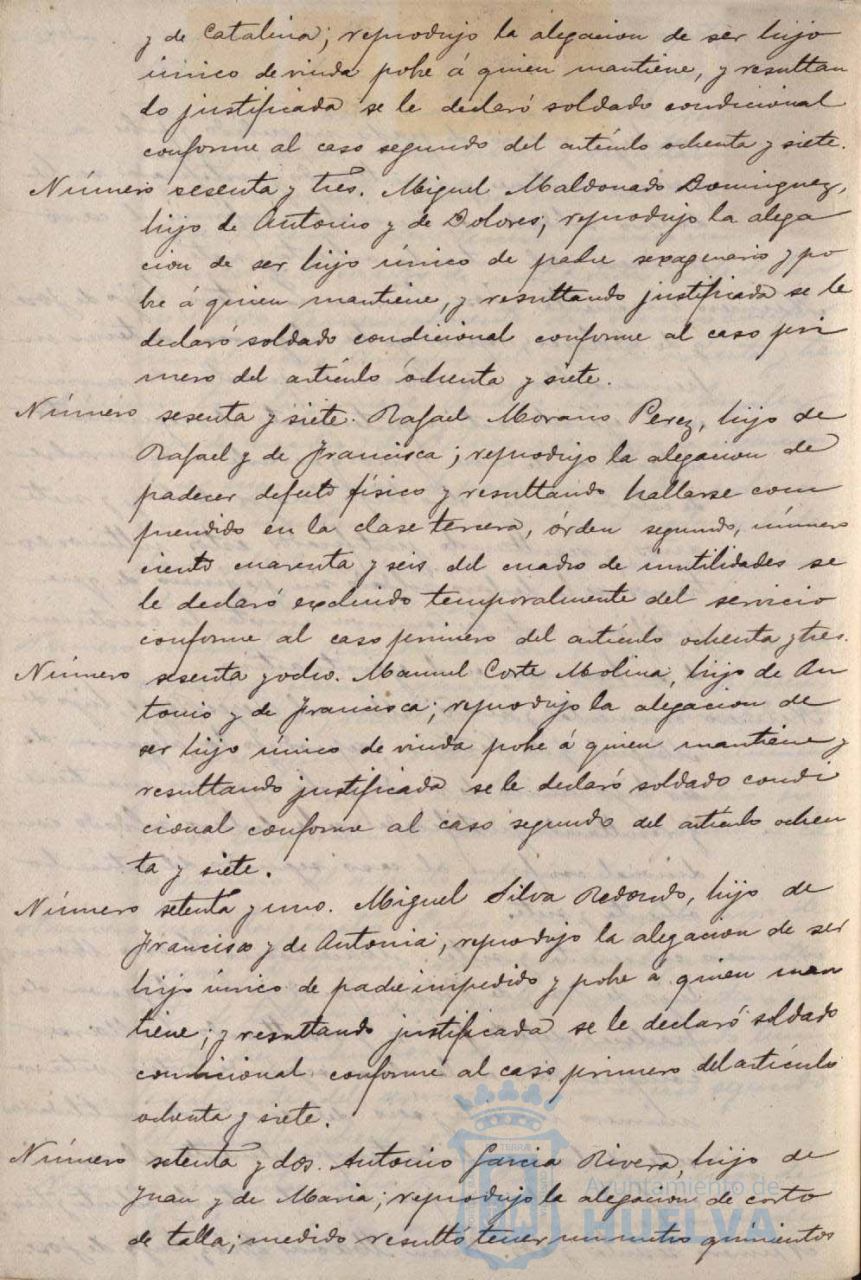 y de Catalina; reprodujo la alegacion de ser hijo
único de viuda pobre á quien mantiene, y resultan
do justificada se le declaró soldado condicional
conforme al caso segundo del artículo ochenta y siete.
Número sesenta y tres. Miguel Maldonado Dominguez,
hijo de Antonio y de Dolores; reprodujo la alega
cion de ser hijo único de padre sexagenario y po
bre á quien mantiene, y resultando justificada se le
declaró soldado condicional conforme al caso pri
mero del artículo ochenta y siete.
Número sesenta y siete. Rafael Morano Perez, hijo de
Rafael y de Francisca; reprodujo la alegacion de
padecer defecto físico y resultando hallarse com
prendido en la clase tercera, órden segundo, número
ciento cuarenta y seis del cuadro de inutilidades se
le declaró excluido temporalmente del servicio
conforme al caso primero del artículo ochenta y tres.
Número sesenta y ocho. Manuel Corte Molina, hijo de An
tonio y de Francisca; reprodujo la alegacion de
ser hijo único de viuda pobre á quien mantiene y
resultando justificada se le declaró soldado condi
cional conforme al caso segundo del artículo ochen
ta y siete.
Número setenta y uno. Miguel Silva Redondo, hijo de
Francisco y de Antonia; reprodujo la alegacion de ser
hijo único de padre impedido y pobre á quien man
tiene; y resultando justificada se le declaró soldado
condicional conforme al caso primero del artículo
ochenta y siete.
Número setenta y dos. Antonio Garcia Rivera, hijo de
Juan y de Maria; reprodujo la alegacion de corto
de talla; medido resultó tener un metro quinientos
Ayuntamiento de
HUELVA